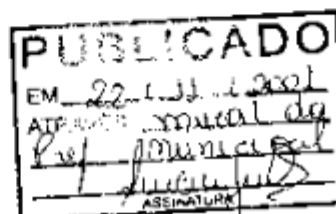 PUBLICADO
EM 22 11 2001
mural da
Pref Municipal
ASSINATURA